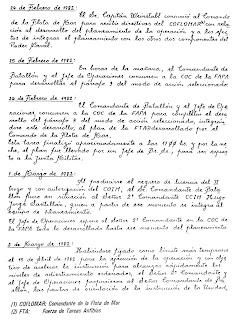 24 de Febrero de 1982:
El Sr. Capitán Weinstabl concurrió al Comando
de la Flota de Mar para recibir directivas del COFLOMAR(1) con rela
ción al desarrollo del planeamiento de la operación y a los efec
tos de integrar el planeamiento con los otros dos componentes del
Poder Naval.
25 de Febrero de 1982:
En horas de la mañana, el Comandante de
Batallón y el Jefe de Operaciones concurren a la COC de la FAPA
para desarrollar el párrafo 3 del modo de acción seleccionado.
26 de Febrero de 1982:
El Comandante de Batallón y el Jefe de Ope
raciones, concurren a la COC de la FAPA para completar el desa
rrollo del párrafo 3 del modo de acción seleccionado, integrán
dose este desarrollo, al plan de la FTA(2) desarrollado por el
Comando de la Flota de Mar.
Esta tarea finalizó aproximadamente a las 1700 hs. y por la no
che, el plan fue llevado por un Jefe a Bs.As., para ser expues
to a la Junta Militar.
1 de Marzo de 1982:
Al producirse el regreso de licencia del II
Cargo y con autorización del COIM, el Sr. Comandante de Bata
llón puso en situación al Señor 2º Comandante CCIM Hugo
Jorge Santillán, quien a partir de ese momento se integra al
equipo de planeamiento.
El Jefe de Operaciones expuso al Señor 2º Comandante en la COC de
la FAPA todo lo desarrollado hasta ese momento del planeamiento.
2 de Marzo de 1982:
Habiéndose fijado como límite más temprano
el 15 de Abril de 1982 para la ejecución de la operación y con obje
tivo de acelerar la instrucción para alcanzar rápidamente los
niveles de adiestramiento adecuados, el Señor 2º Comandante y
el Jefe de Operaciones propusieron al Señor Comandante del Bata
llón, las pautas de conducción de la instrucción de la Unidad,
(1) COFLOMAR: Comandante de la Flota de Mar
(2) FTA: Fuerza de Tareas Anfibias